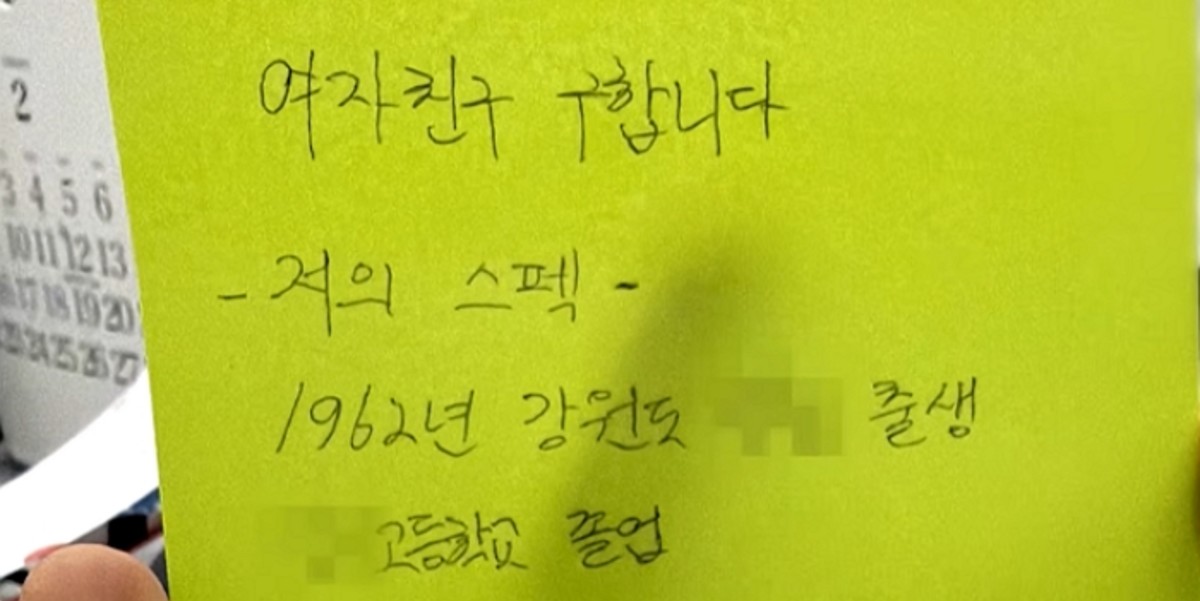 여자친구 구합니다
- 저의 스펙 -
1962년 강원도 출생
고등학교 졸업
2
3 4 5 6
10 11 12 13
17 18 19 20
24 25 26 27